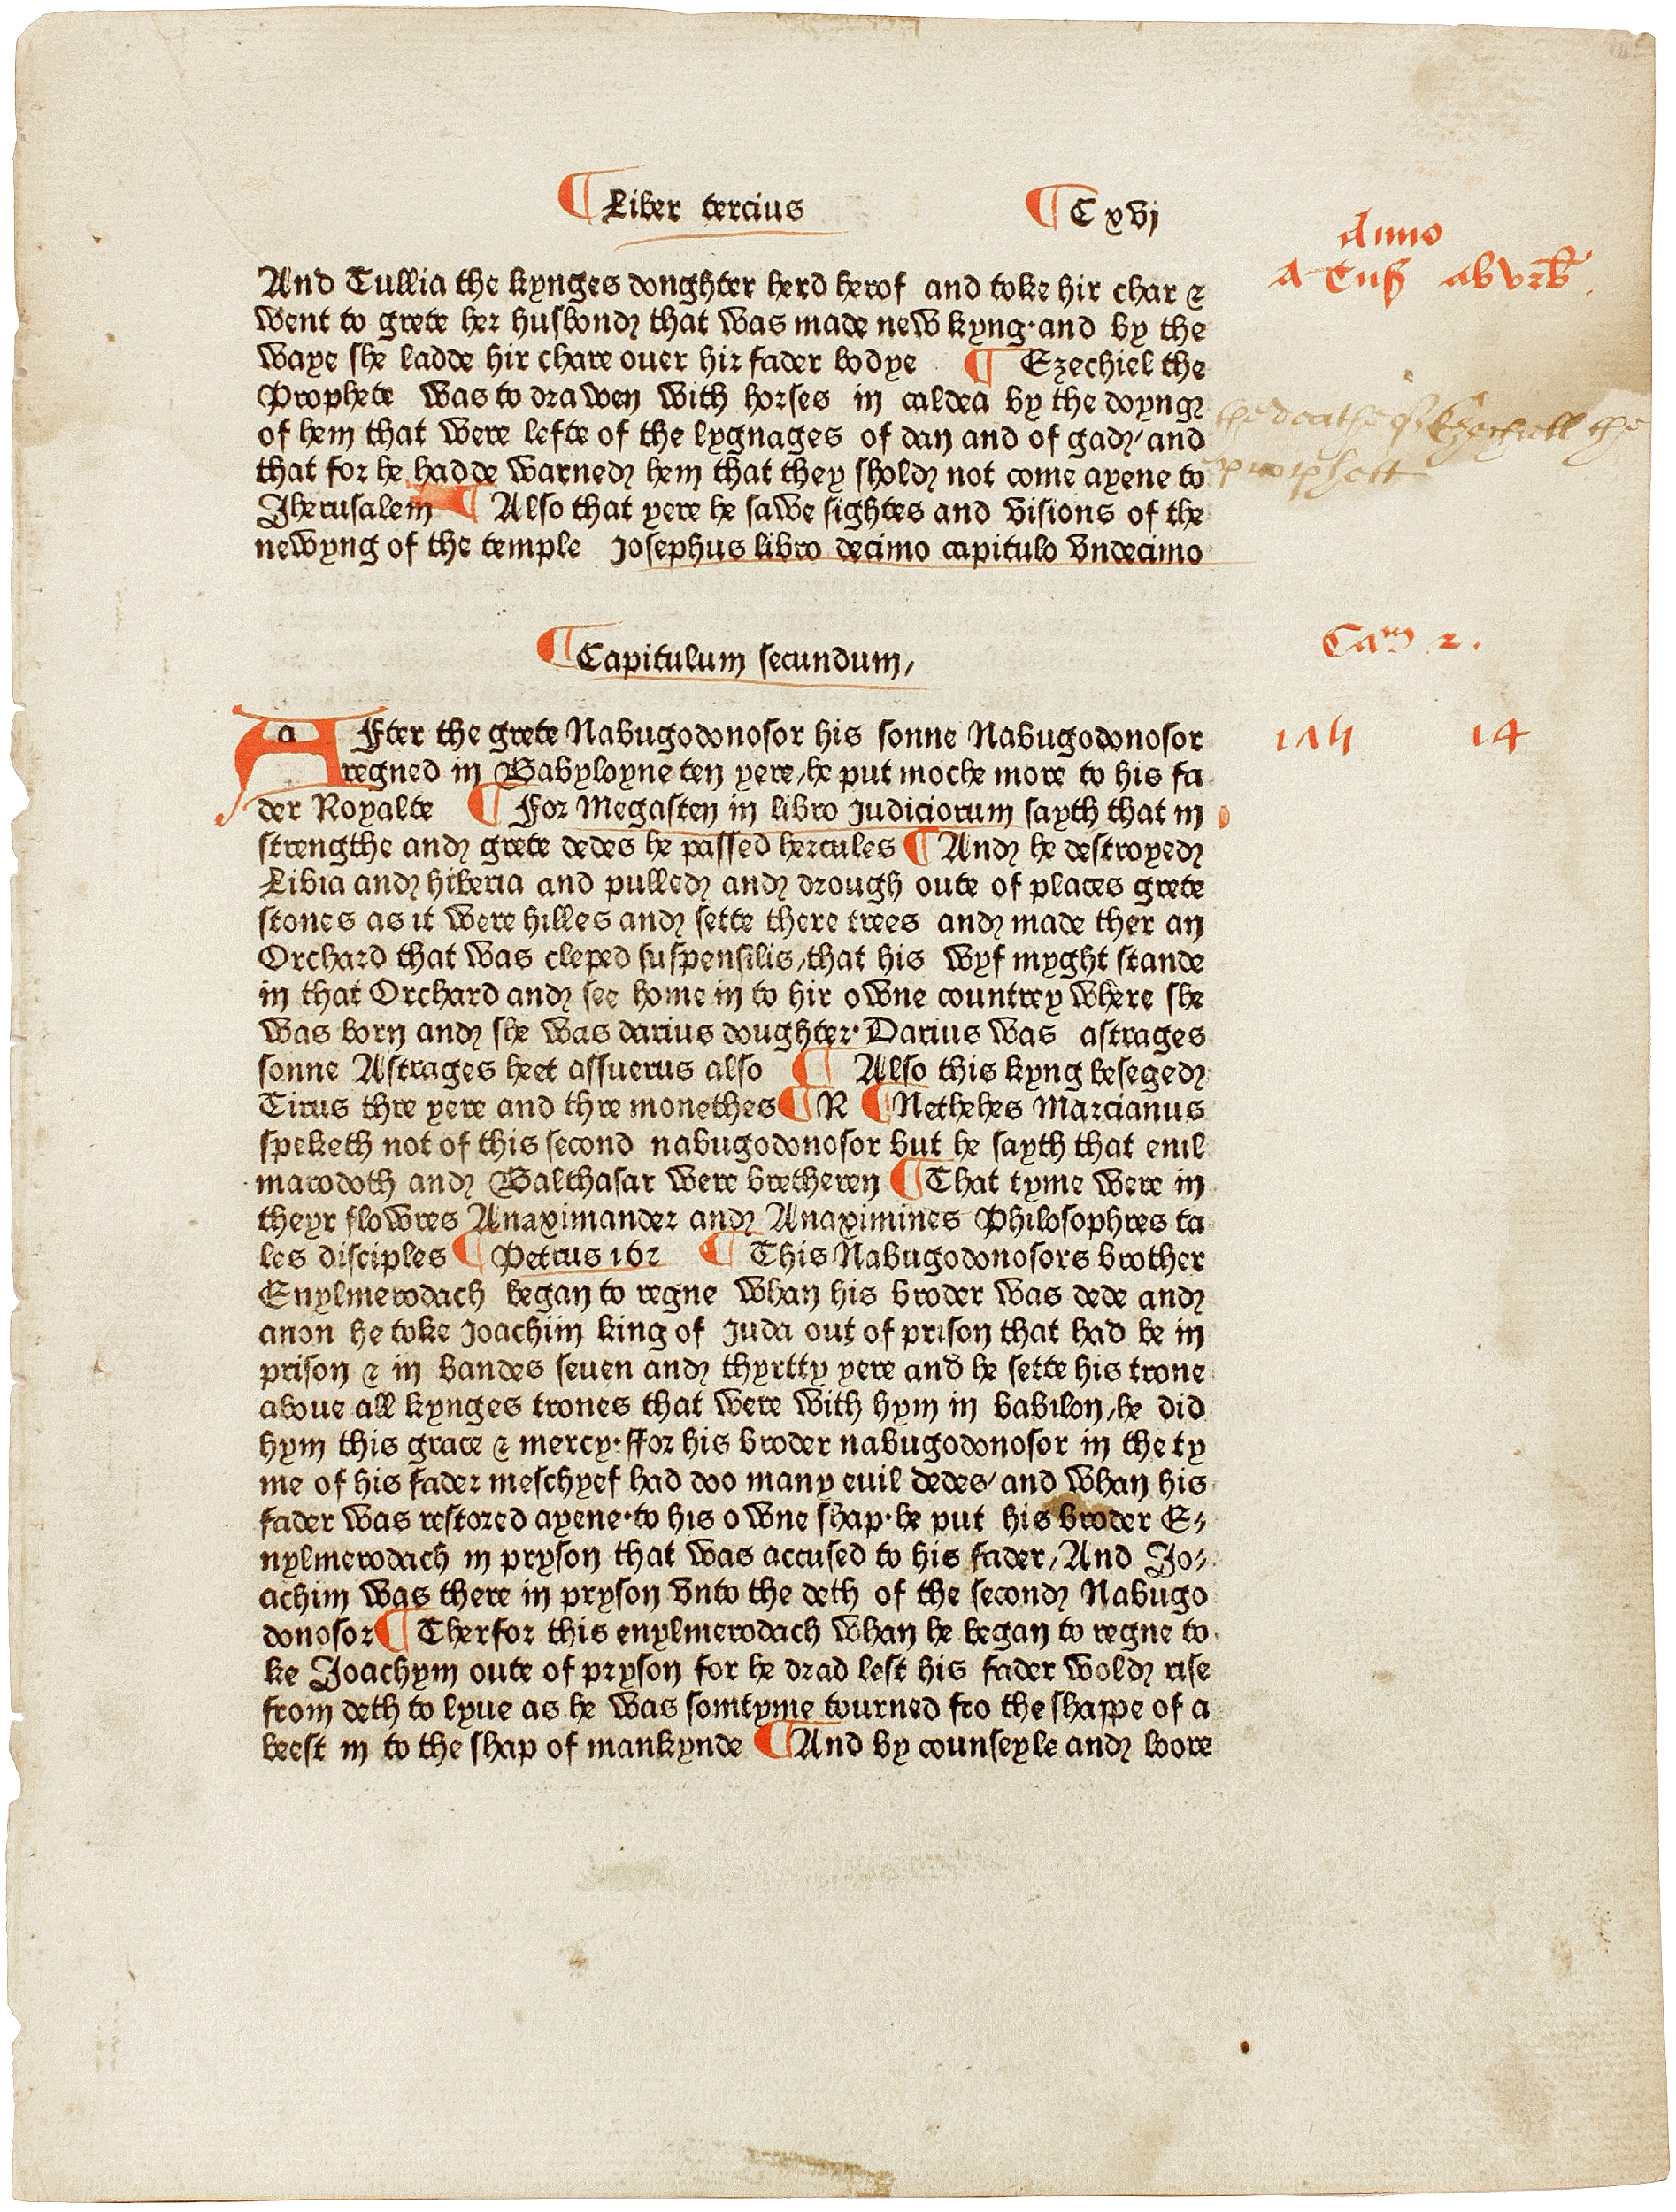 ¶ Liber tercius ¶ C xvj
Anno
And Tullia the kynges donghter herd herof and toke hir char &
went to grete her husbond that was made new kyng·and by the
waye she ladde hir chare ouer hir fader bodye ¶ Ezechiel the
Prophete was to drawen with horses in caldea by the doyng
of hem that were lefte of the lygnages of dan and of gad/and
that for he hadde warned hem that they shold not come ayene to
Jherusalem ¶ Also that yere he sawe sightes and visions of the
newyng of the temple Josephus libro decimo capitulo vndecimo
the deathe of Ezechiell the
prophett
¶ Capitulum secundum/
Cam 2.
14
AFter the grete Nabugodonosor his sonne Nabugodonosor
regned in Babyloyne ten yere/he put moche more to his fa
der Royalte ¶ For Megasten in libro Judiciorum sayth that in
strengthe and grete dedes he passed hercules ¶ And he destroyed
Libia and hiberia and pulled and drough oute of places grete
stones as it were hilles and sette there trees and made ther an
Orchard that was cleped suspensilis/that his wyf myght stande
in that Orchard and see home in to hir owne countrey where she
was born and she was darius doughter·Darius was astrages
sonne Astrages heet assuerus also ¶ Also this kyng beseged
Tirus thre yere and thre monethes ¶ R ¶ Netheles Marcianus
speketh not of this second nabugodonosor but he sayth that enil
marodoth and Balthasar were bretheren ¶ That tyme were in
theyr flowres Anaximander and Anaximines Philosophres ta
les disciples ¶ Petrus 162 ¶ This Nabugodonosors brother
Enylmerodach began to regne whan his broder was dede and
anon he toke Joachim king of Juda out of prison that had be in
prison & in bandes seuen and thyrtty yere and he sette his trone
aboue all kynges trones that were with hym in babilon/he did
hym this grace & mercy·ffor his broder nabugodonosor in the ty
me of his fader meschyef had doo many euil dedes/and whan his
fader was restored ayene·to his owne shap·he put his broder E⸗
nylmerodach in pryson that was accused to his fader/And Jo⸗
achim was there in pryson vnto the deth of the second Nabugo
donosor ¶ Therfor this enylmerodach whan he began to regne to
ke Joachym oute of pryson for he drad lest his fader wold rise
from deth to lyue as he was somtyme tourned fro the shappe of a
beest in to the shap of mankynde ¶ And by counseyle and loore